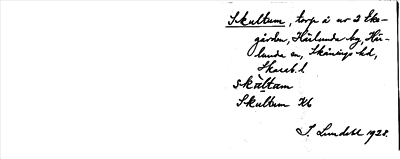 Skultum, torp å nr 2 Eke-
gården, Härlunda by, Här-
lunda sn, Skånings hd,
Skarab. l
skàltam
Skultum Kb
S. Lundell 1928.